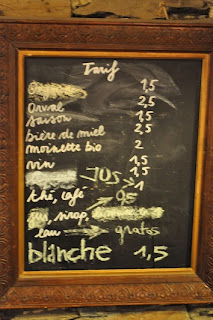 Tarif
1,5
orval 2,5
saison 1,5
bière de miel 2,5
moinette bio 2
vin 1,5
JUS 1,5
thé, café 1
jus, sirop,
eau gratos
blanche 1,5